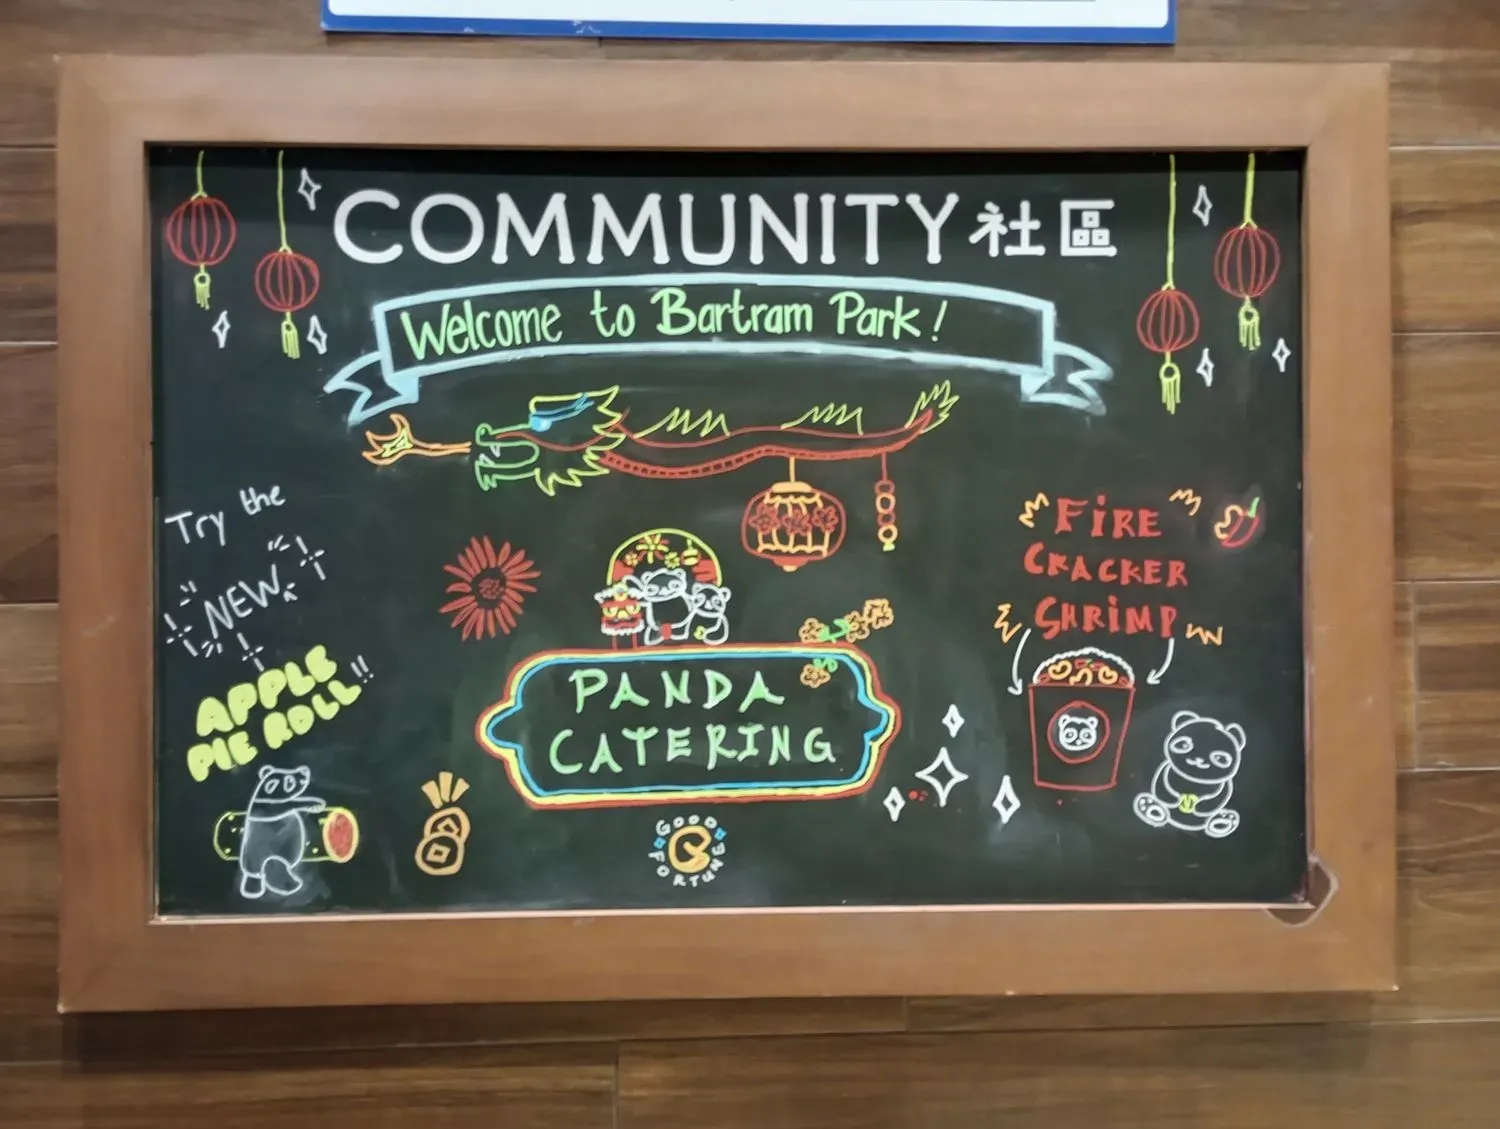 COMMUNITY 社區
Welcome to Bartram Park!
Try the
NEW
APPLE
PIE ROLL!!
FiRE
CRACKER
SHRiMP
PANDA
CATERING
GOOD
FORTUNE